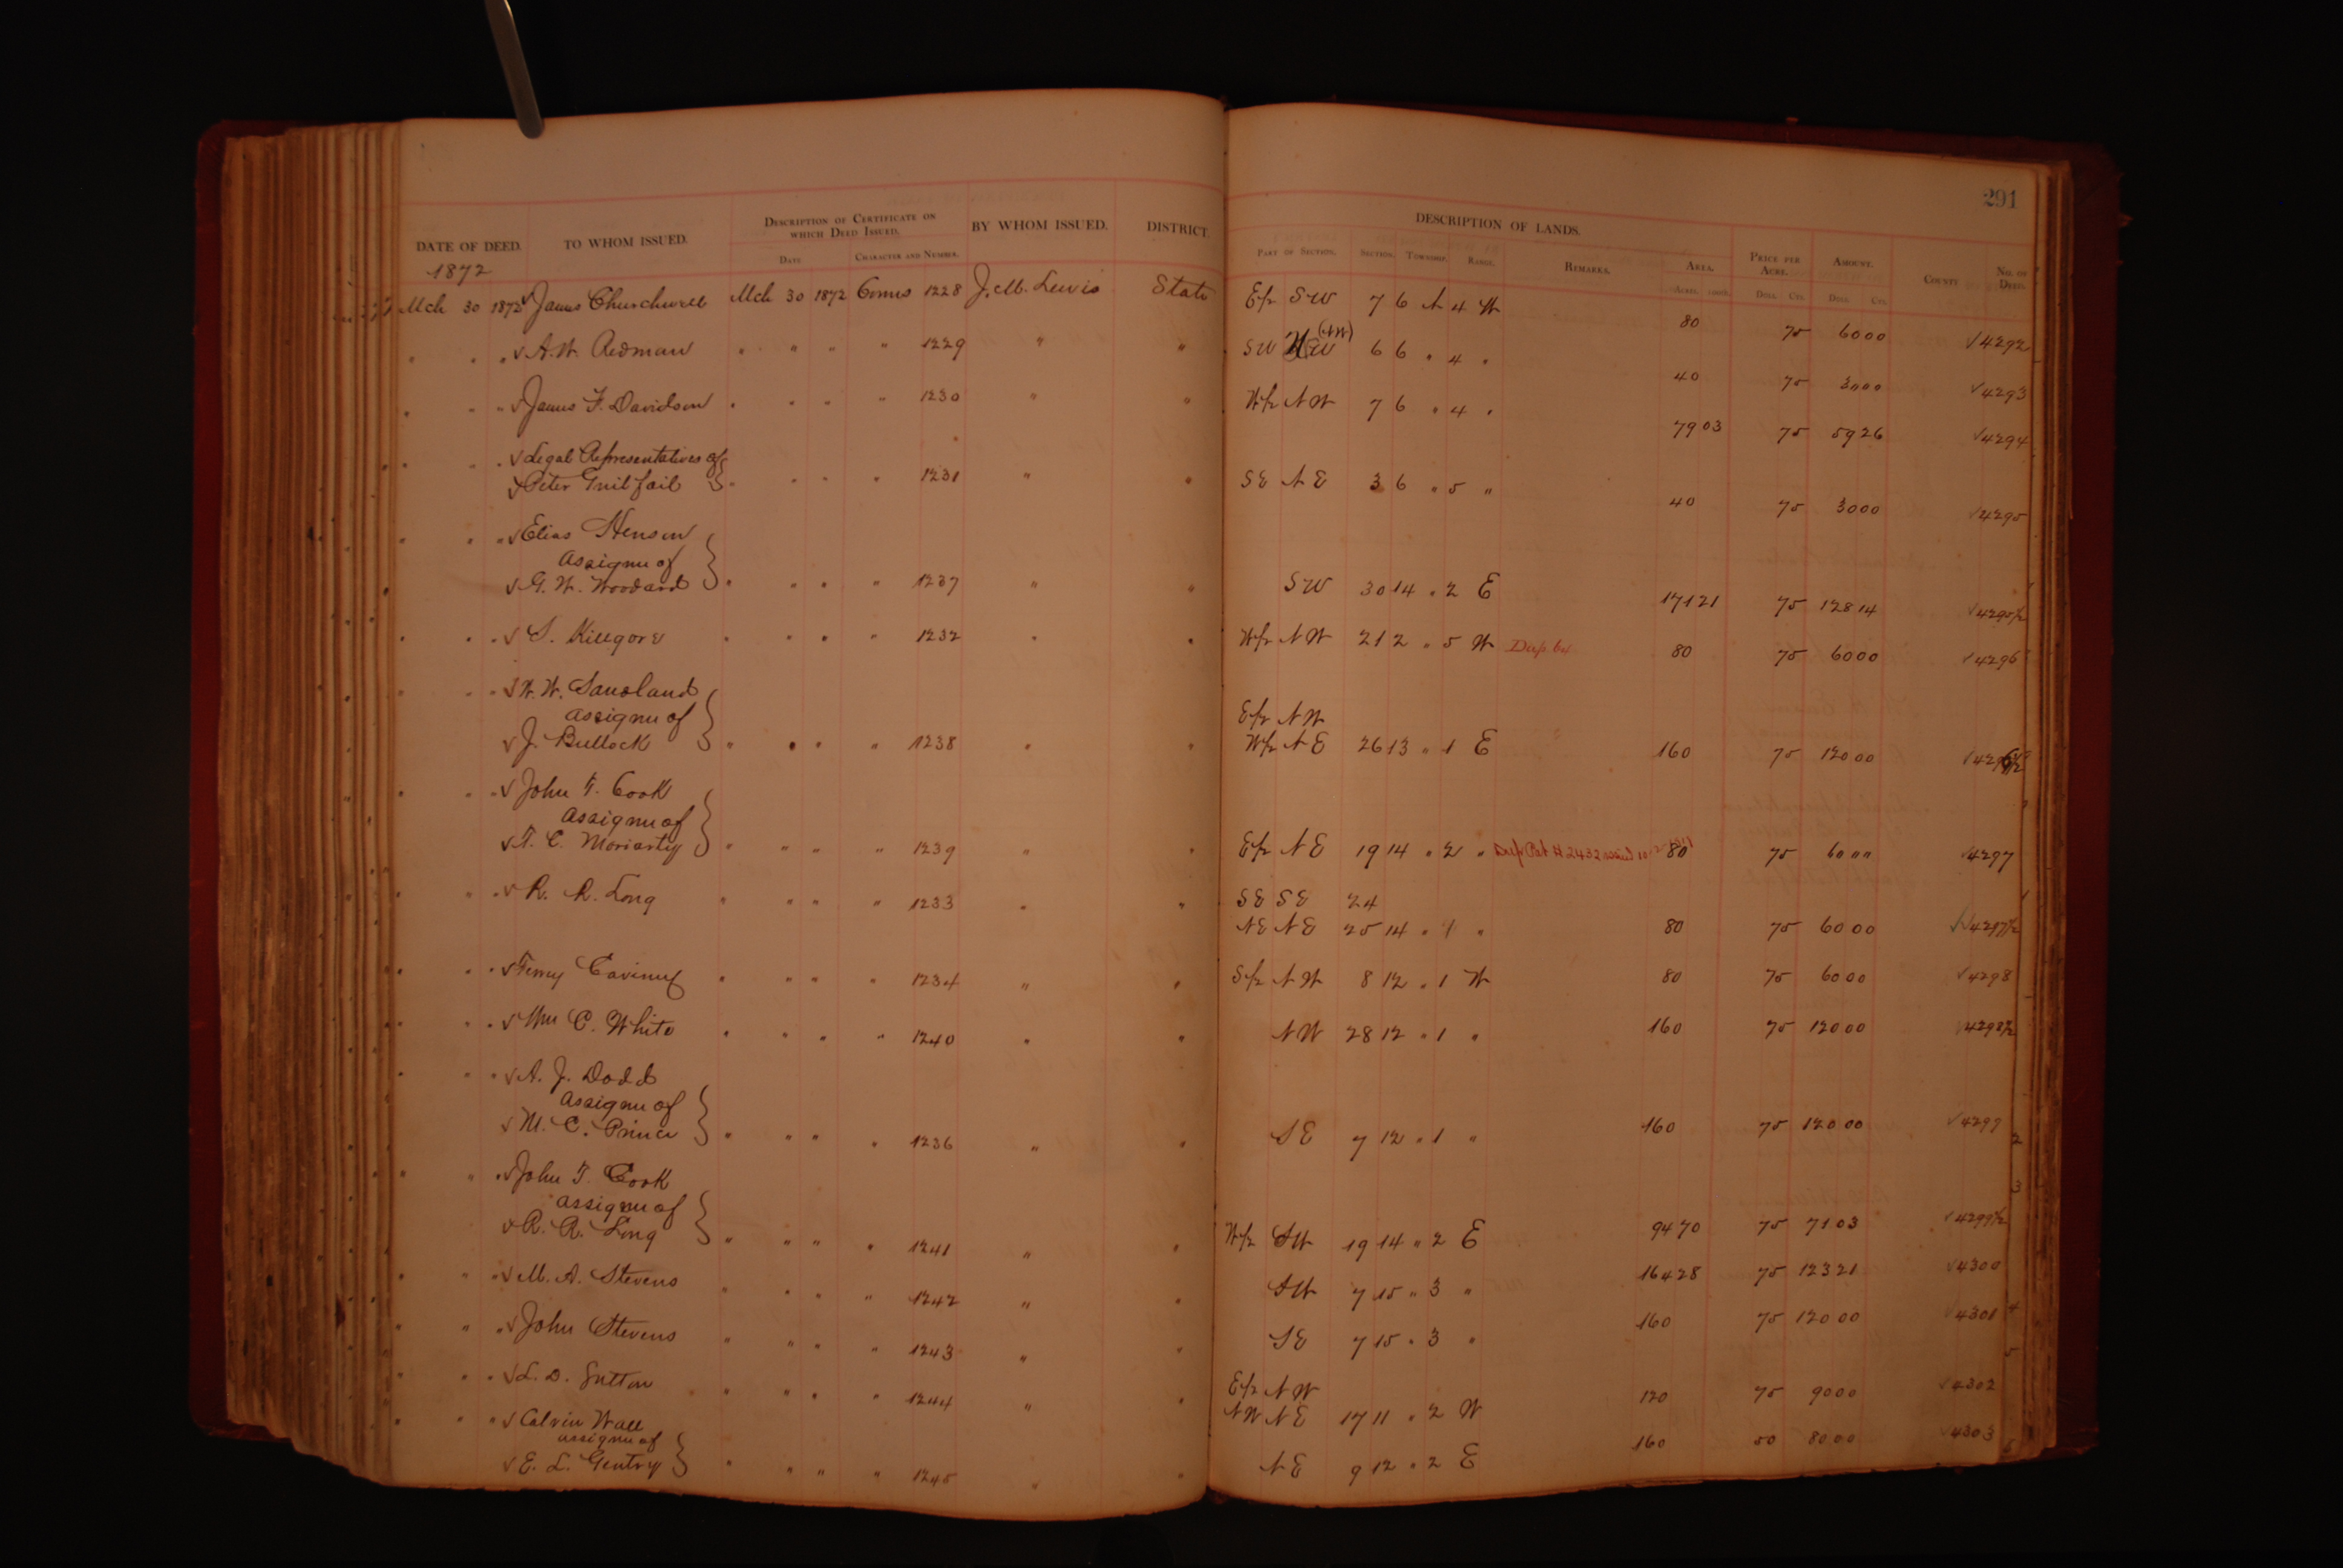 291
DATE OF DEED. TO WHOM ISSUED. DESCRIPTION OF CERTIFICATE ON WHICH DEED ISSUED. BY WHOM ISSUED. DISTRICT. DESCRIPTION OF LANDS. PRICE PER ACRE. AMOUNT. COUNTY NO. OF DEED.
DATE CHARACTER AND NUMBER. PART OF SECTION. SECTION. TOWNSHIP. RANGE. REMARKS. AREA.
ACRES. 100THS. DOLL. CTS. DOLL. CTS.
1872
Mch 30 1872 √ James Churchwell Mch 30 1872 Comrs 1228 J. M. Lewis State E½ SW 7 6 N 4 W 80 75 60 00 √ 4292
" " " √ A. W. Redman " " " " 1229 " " SW (NW) 6 6 " 4 " 40 75 30 00 √ 4293
" " " √ James F. Davidson " " " " 1230 " " W½ NW 7 6 " 4 " 79 03 75 59 26 √ 4294
" " " √ Legal Representatives of
√ Peter Guilfoil } " " " " 1231 " " SE NE 3 6 " 5 " 40 75 30 00 √ 4295
" " " √ Elias Henson
assignee of
√ G. W. Woodard } " " " " 1237 " " SW 30 14 " 2 E 171 21 75 128 14 √ 4295½
" " " √ S. Killgore " " " " 1232 " " W½ NW 21 2 " 5 W 80 75 60 00 √ 4296
" " " √ W. W. Sansland
assignee of E½ NW
√ J. Bullock } " " " " 1238 " " W½ NE 26 13 " 1 E 160 75 120 00 √ 4296½
" " " √ John T. Cook
assignee of
√ T. C. Moriarty } " " " " 1239 " " E½ NE 19 14 " 2 " Dup Pat # 2432 issued 80 75 60 00 √ 4297
" " " √ R. R. Long " " " " 1233 " " SE SE 24
NE NE 25 14 " 1 " 80 75 60 00 √ 4297½
" " " √ Cavinus " " " " 1234 " " S½ NW 8 12 " 1 W 80 75 60 00 √ 4298
" " " √ Wm C. White " " " " 1240 " " NW 28 12 " 1 " 160 75 120 00 √ 4298½
" " " √ A. J. Dodd
assignee of
√ M. C. Prince } " " " " 1236 " " SE 7 12 " 1 " 160 75 120 00 √ 4299
" " " √ John T. Cook
assignee of
√ R. R. Long } " " " " 1241 " " W½ SW 19 14 " 2 E 94 70 75 71 03 √ 4299½
" " " √ M. A. Stevens " " " " 1242 " " SW 7 15 " 3 " 164 28 75 123 21 √ 4300
" " " √ John Stevens " " " " 1243 " " SE 7 15 " 3 " 160 75 120 00 √ 4301
" " " √ L. D. Sutton " " " " 1244 " " E½ NW
NW NE 17 11 " 2 W 120 75 90 00 √ 4302
" " " √ Calvin Wall
assignee of
√ E. L. Gentry } " " " " 1245 " " NE 9 12 " 2 E 160 50 80 00 √ 4303